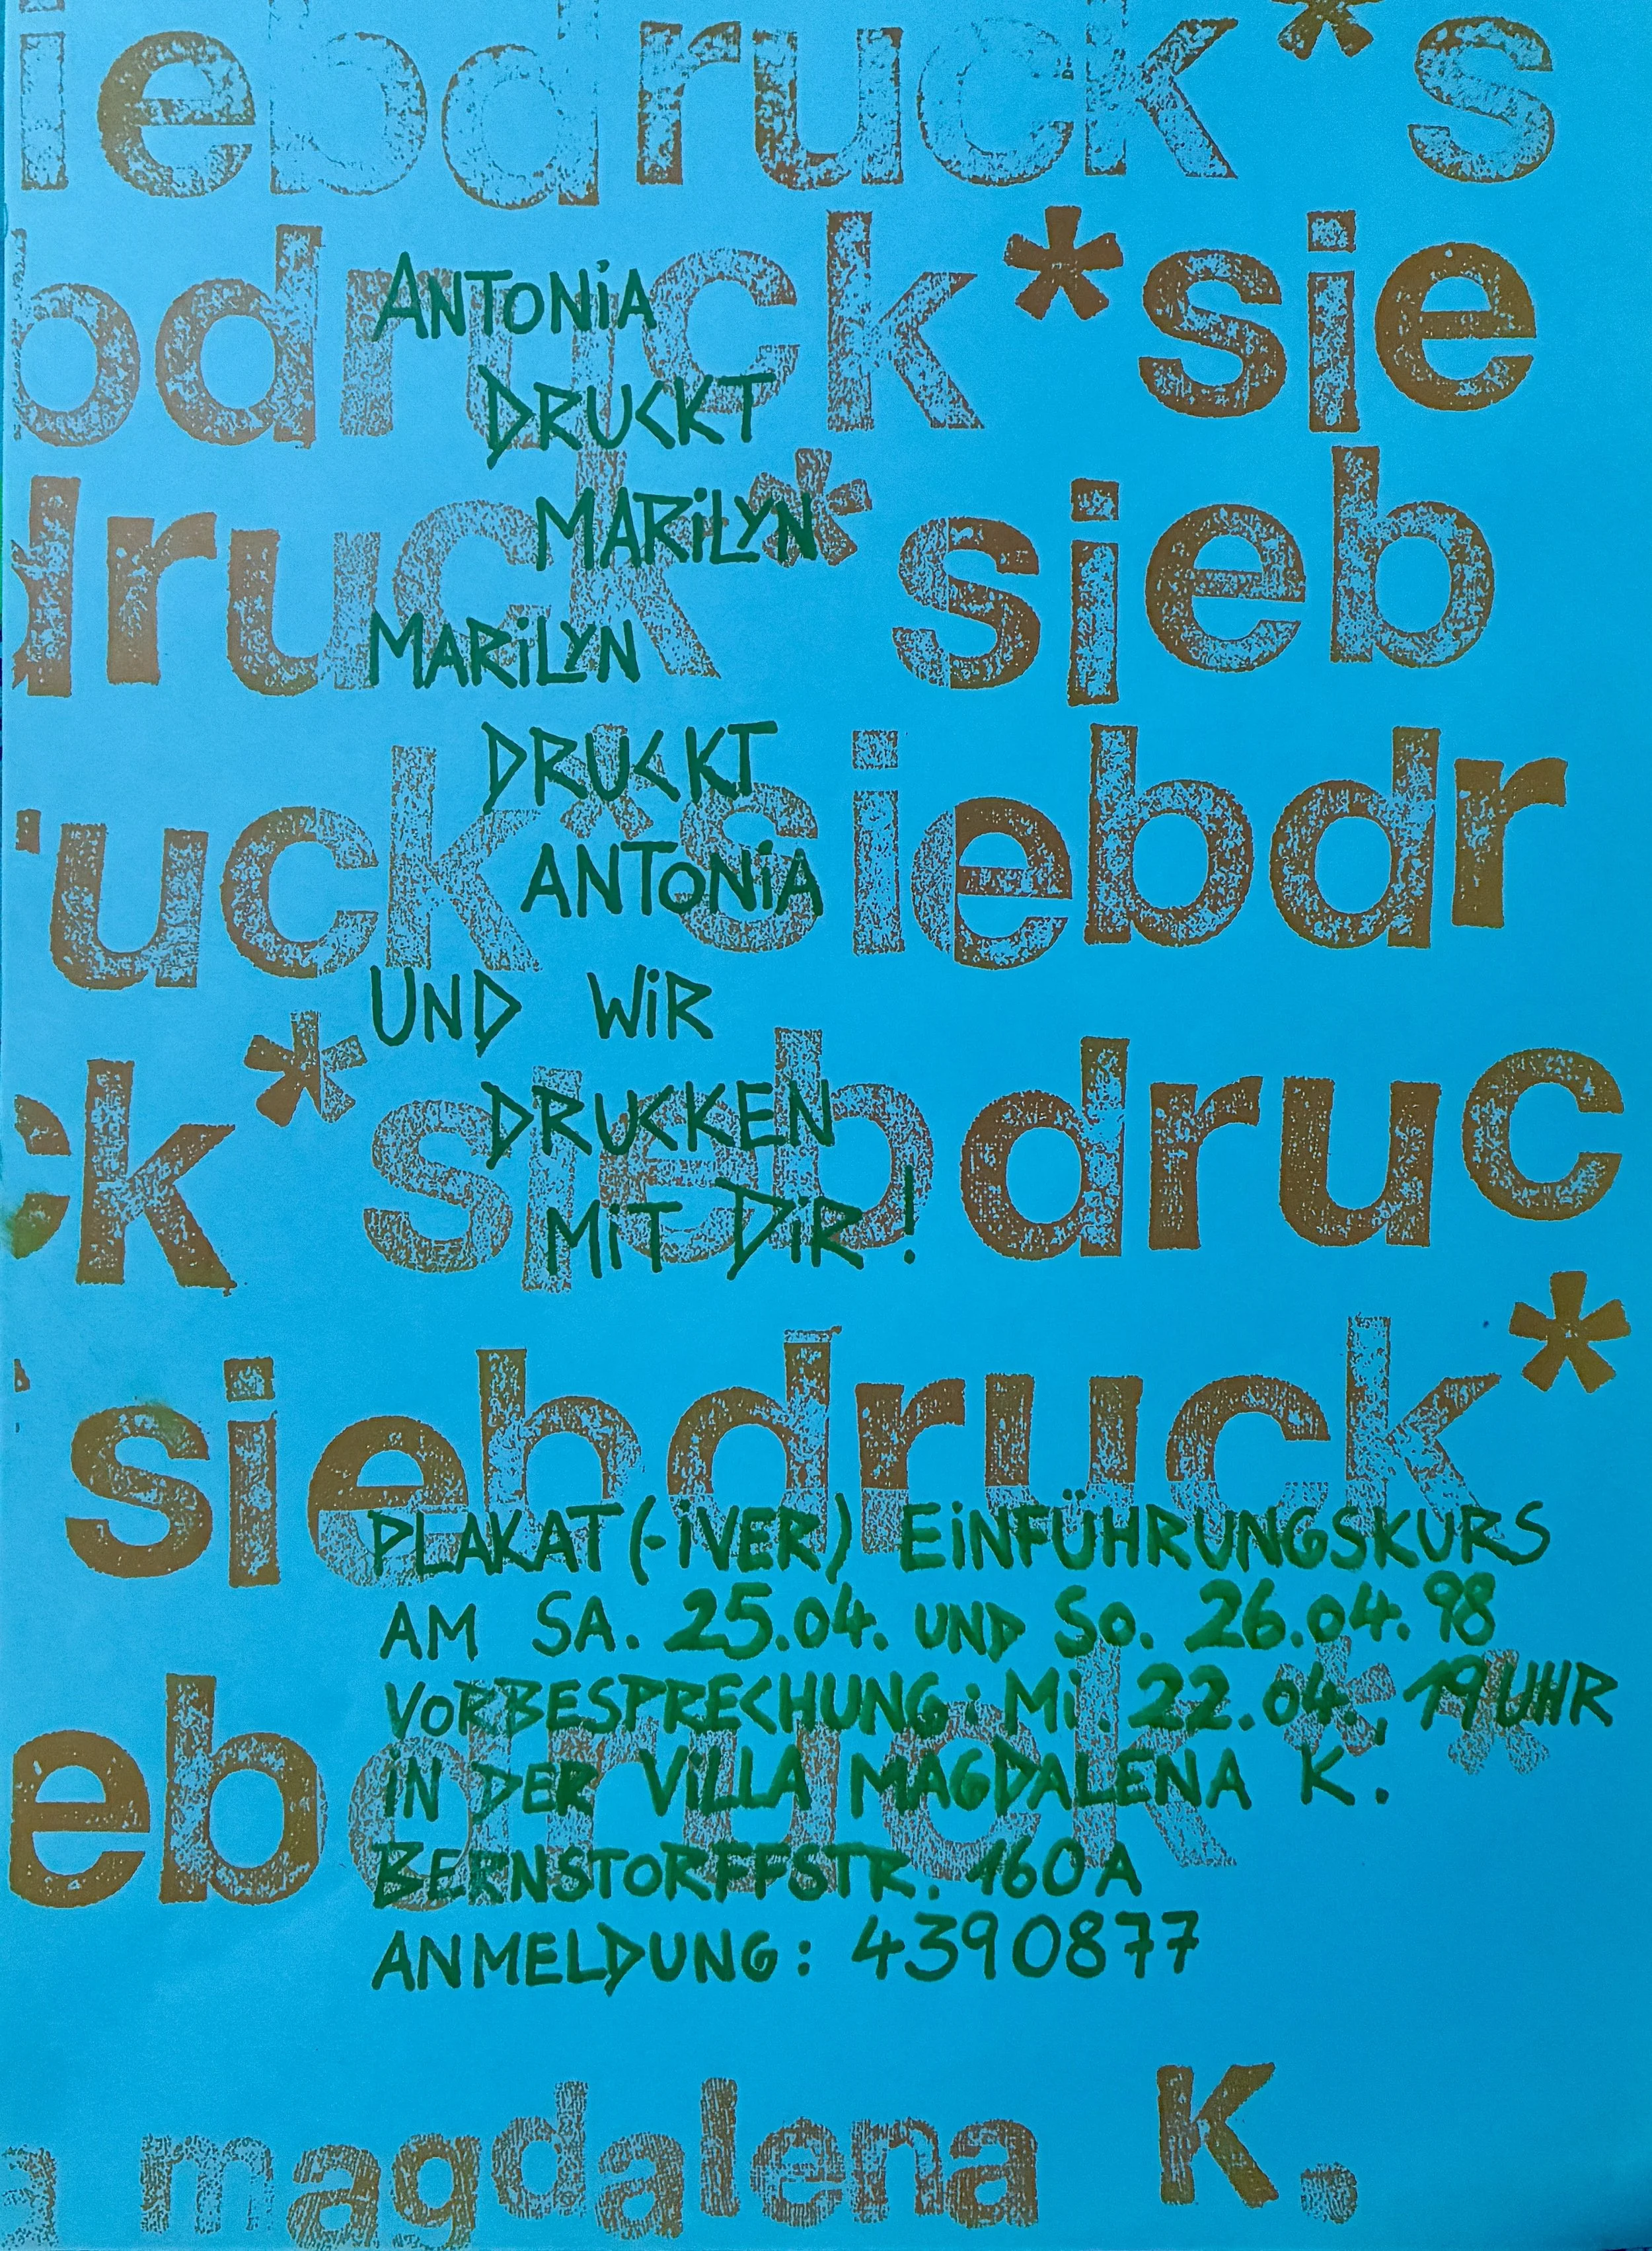 iebdruck*s
bdruck*sie
druck*sieb
ruck*siebdr
ck*siebdruc
*siebdruck*
ebdruck**
a magdalena K.
ANTONiA
DRUCKT
MARiLYN
MARiLYN
DRUCKT
ANTONiA
UND WiR
DRUCKEN
MiT DiR!
PLAKAT(-iVER) EiNFÜHRUNGSKURS
AM SA. 25.04. UND SO. 26.04.98
VORBESPRECHUNG: Mi. 22.04., 19 UHR
iN DER ViLLA MAGDALENA K.
BERNSTORFFSTR. 160A
ANMELDUNG: 4390877